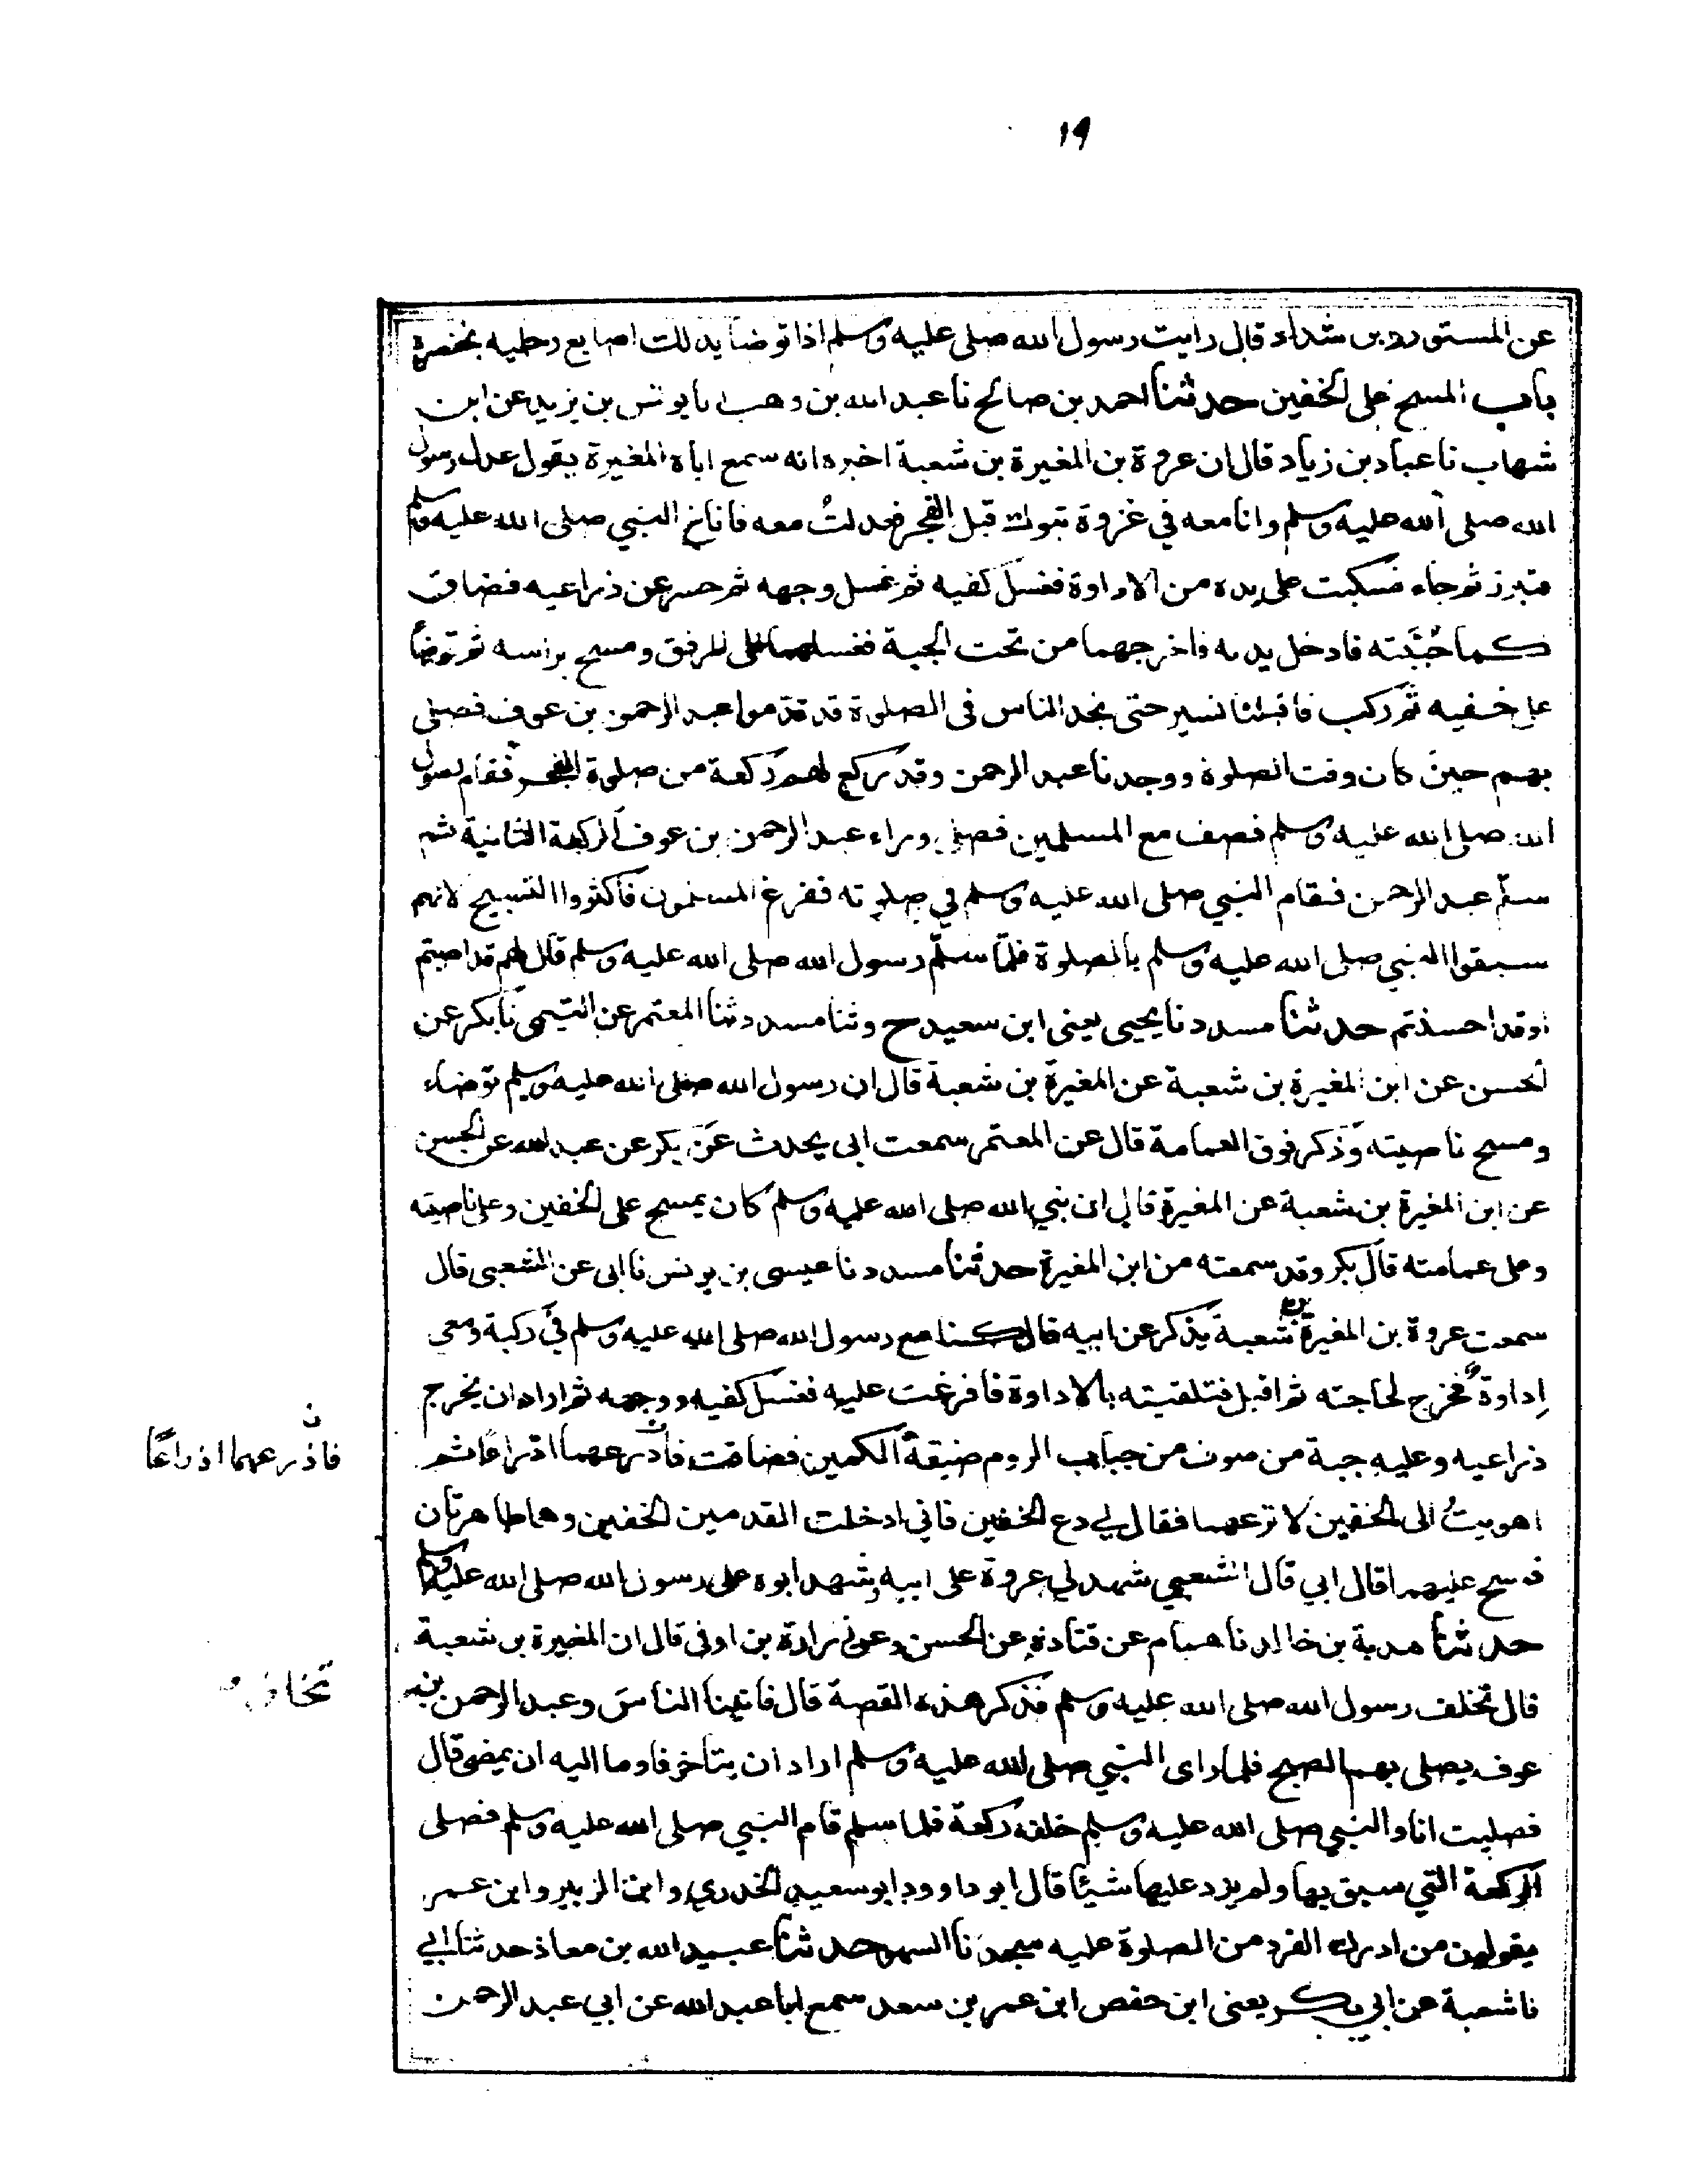 ١٩
عن المستورد بن شداد قال رايت رسول الله صلى عليه وسلم اذا توضا يدلك اصابع رجليه بخنصره
باب المسح على الخفين حدثنا احمد بن صالح نا عبد الله بن وهب نا يونس بن يزيد عن ابن
شهاب نا عباد بن زياد قال ان عروة بن المغيرة بن شعبة اخبره انه سمع اباه المغيرة يقول عدل رسول
الله صلى الله عليه وسلم وانا معه في غزوة تبوك قبل الفجر فعدلتُ معه فاناخ النبي صلى الله عليه وسلم
فتبرز ثم جاء فسكبت على يده من الاداوة فغسل كفيه ثم غسل وجهه ثم حسر عن ذراعيه فضاق
كما جُبَّته فادخل يديه فاخرجهما من تحت الجبة فغسلهما الى المرفق ومسح براسه ثم توضأ
على خفيه ثم ركب فاقبلنا نسير حتى نجد الناس في الصلوة قد قدموا عبد الرحمن بن عوف فصلى
بهم حين كان وقت الصلوة ووجدنا عبد الرحمن وقد ركع لهم ركعة من صلوة الفجر فقام رسول
الله صلى الله عليه وسلم فصف مع المسلمين فصلى وراء عبد الرحمن بن عوف الركعة الثانية ثم
سلّم عبد الرحمن فقام النبي صلى الله عليه وسلم في صلوته ففزع المسلمون فاكثروا التسبيح لانهم
سبقوا النبي صلى الله عليه وسلم بالصلوة فلمّا سلّم رسول الله صلى الله عليه وسلم قال لهم قد اصبتم
او قد احسنتم حدثنا مسدد نا يحيى يعنى ابن سعيد ح وثنا مسدد ثنا المعتمر عن التيمى نا بكر عن
الحسن عن ابن المغيرة بن شعبة عن المغيرة بن شعبة قال ان رسول الله صلى الله عليه وسلم توضاء
ومسح ناصيته وذكر فوق العمامة قال عن المعتمر سمعت ابى يحدث عن بكر عن عبد الله عن الحسن
عن ابن المغيرة بن شعبة عن المغيرة قال ان نبي الله صلى الله عليه وسلم كان يمسح على الخفين وعلى ناصيته
وعلى عمامته قال بكر وقد سمعته من ابن المغيرة حدثنا مسدد نا عيسى بن يونس نا ابى عن الشعبى قال
سمعت عروة بن المغيرة بن شعبة يذكر عن ابيه قال كنا مع رسول الله صلى الله عليه وسلم في ركبة ومعى
اِداوة فخرج لحاجته ثم اقبل فتلقيته بالاداوة فافرغت عليه فغسل كفيه ووجهه ثم اراد ان يخرج
ذراعيه وعليه جبة من صوف من جباب الروم ضيقة الكمين فضاقت فاذرعهما اذراعًا ثم
ن
فاذرعهما اذراعًا
اهويتُ الى الخفين لانزعهما فقال لي دع الخفين فاني ادخلت القدمين الخفين وهما طاهرتان
فمسح عليهما قال ابي قال الشعبي شهد لي عروة على ابيه وشهد ابوه على رسول الله صلى الله عليه وسلم
حدثنا هدبة بن خالد نا همام عن قتادة عن الحسن وعن زرارة بن اوفى قال ان المغيرة بن شعبة
قال تخلف رسول الله صلى الله عليه وسلم فذكر هذه القصة قال فاتينا الناس وعبد الرحمن بن
عوف يصلى بهم الصبح فلما راى النبي صلى الله عليه وسلم اراد ان يتأخر فاوما اليه ان يمضى قال
فصليت انا والنبي صلى الله عليه وسلم خلفه ركعة فلما سلم قام النبي صلى الله عليه وسلم فصلى
الركعة التي سبق بها ولم يزد عليها شيئًا قال ابو داوود ابو سعيد الخدري وابن الزبير وابن عمر
يقولون من ادرك الفرد من الصلوة عليه سجدتا السهو حدثنا عبيد الله بن معاذ حدثنا ابي
نا شعبة عن ابي بكر يعنى ابن حفص ابن عمر بن سعد سمع ابا عبد الله عن ابي عبد الرحمن